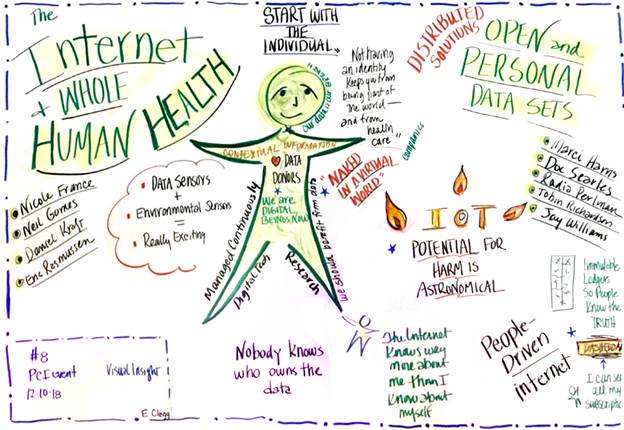 The
Internet
+ WHOLE
HUMAN HEALTH
START WITH
THE
INDIVIDUAL
"Not having
an identity
keeps you from
being part of
the world —
and from
health
care"
DISTRIBUTED
SOLUTIONS
OPEN and
PERSONAL
DATA SETS
Our data is our
CONTEXTUAL INFORMATION
DATA
DONORS
We are
DIGITAL
BEINGS NOW
Managed Continuously
Digital Tech
Research
We should profit from data
companies
"NAKED
IN A VIRTUAL
WORLD"
Nicole France
Neil Gomes
Daniel Kraft
Eric Rasmussen
DATA SENSORS
+
Environmental Sensors
=
Really Exciting
Marci Harris
Doc Searles
Radia Perlman
Tobin Richardson
Jay Williams
IOT
POTENTIAL FOR
HARM IS
ASTRONOMICAL
Immutable
Ledgers
So People
Know the
TRUTH
#8
PCI event
12-10-18
Visual Insight
E. Clegg
Nobody knows
who owns the
data
The Internet
knows way
more about
me than I
know about
myself
People-
Driven
internet
DASHBOARD
I can see
all my